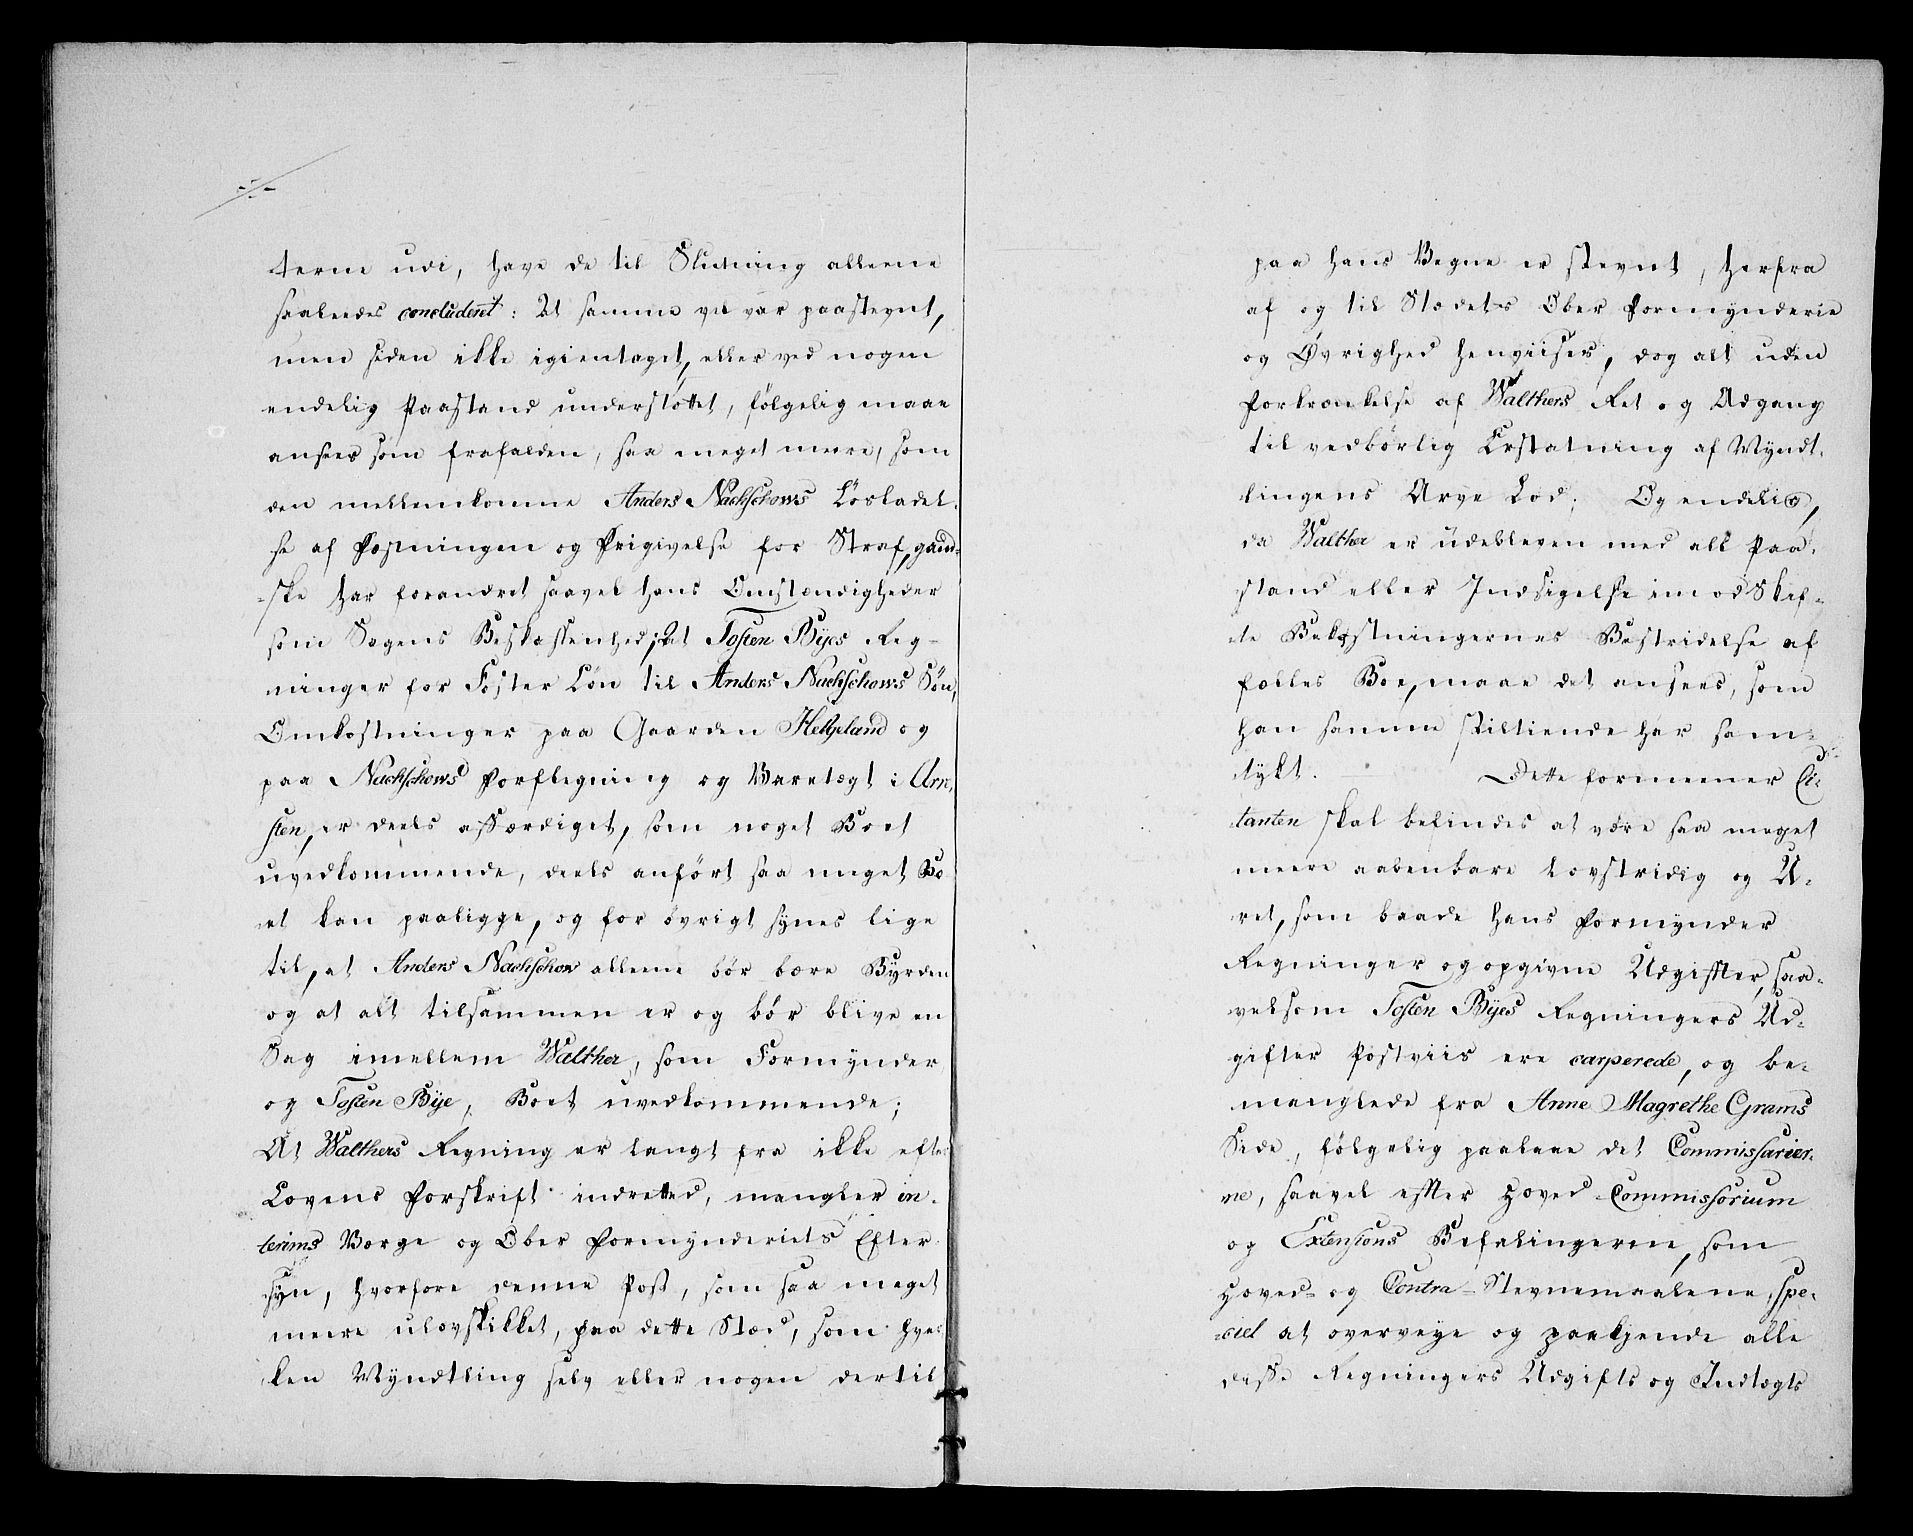 terne udi, have de til Slutning alleene
saaleedes concluderet: At samme vel var paastevnt,
men siden ikke igientaget, eller ved nogen
endelig Paastand understøttet, følgelig maae
ansees som frafalden, saa meget meere, som
den mellemkomne Anders Nachschows Løsladel-
se af Fæstningen og Frigivelse for Straf, gand-
-ske har forandret saavel hans Omstændigheder
som Sagens Beskaffenhed; At Tosten Byes Reg-
ninger for Foster Løn til Anders Nachschows Søn,
Omkostninger paa Gaarden Helgeland og
paa Nachschows Forflegning og Varetægt i Arre-
sten, er deels affærdiget, som noget Boet
uvedkommende, deels anført saa meget Bo-
et kan paaligge, og for øvrigt synes lige
til, at Anders Nachschow alleene bør bære Byrden
og at alt tilsammen er og bør blive en
Sag imellem Walther, som Formynder
og Tosten Bye, Boet uvedkommende;
At Walthers Regning er langt fra ikke efter
Lovens Forskrift indretted, mangler in-
terims Værge og Ober Formynderiets Efter
syn, hvorfore denne Post, som saa meget
meere ulovskikket, paa dette Stæd, som hver
ken Myndtling selv eller nogen dertil
paa hans Vegne er stevnt, herfra
af og til Stædets Ober Formynderie
og Øvrighed henviises, dog alt uden
Forkrænkelse af Walthers Ret og Adgang
til vedbørlig Erstatning af Myndt-
lingens Arve Lod; Og endelig,
da Walther er udebleven med all Paa-
stand eller Indsigelse imod Skif-
te Bekostningernes Bestridelse af
fælles Boe, maae det ansees, som
han samme stiltiende har sam-
tykt. Dette formeener Ci-
tanten skal befindes at være saa meget
meere aabenbare Lovstridig og U-
ret, som baade hans Formynder
Regninger og opgivne Udgiffter, saa-
velsom Tosten Byes Regningers Ud-
gifter Postviis ere carperede, og be-
manglede fra Anne Magrethe Grams
Side, følgelig paalaae det Commissarier-
ne, saavel effter Hoved-Commissorium
og Extensions Befalingerne, som
Hoved- og Contra-Stevnemaalene, spe-
-ciel at overveye og paakjende alle
disse Regningers Udgifts og Indtægts